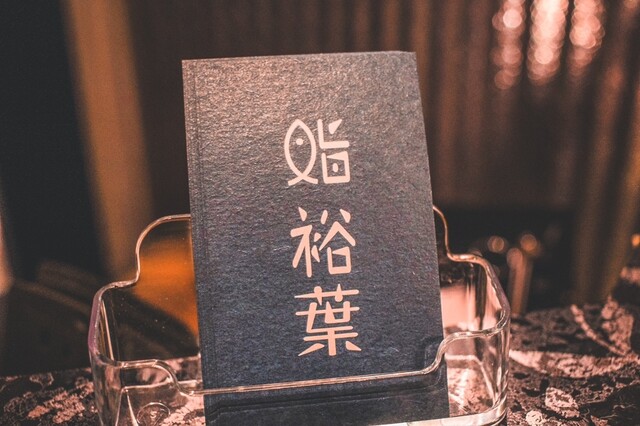 鮨裕葉